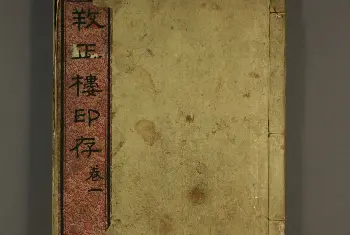 𢼝正樓印存 卷一